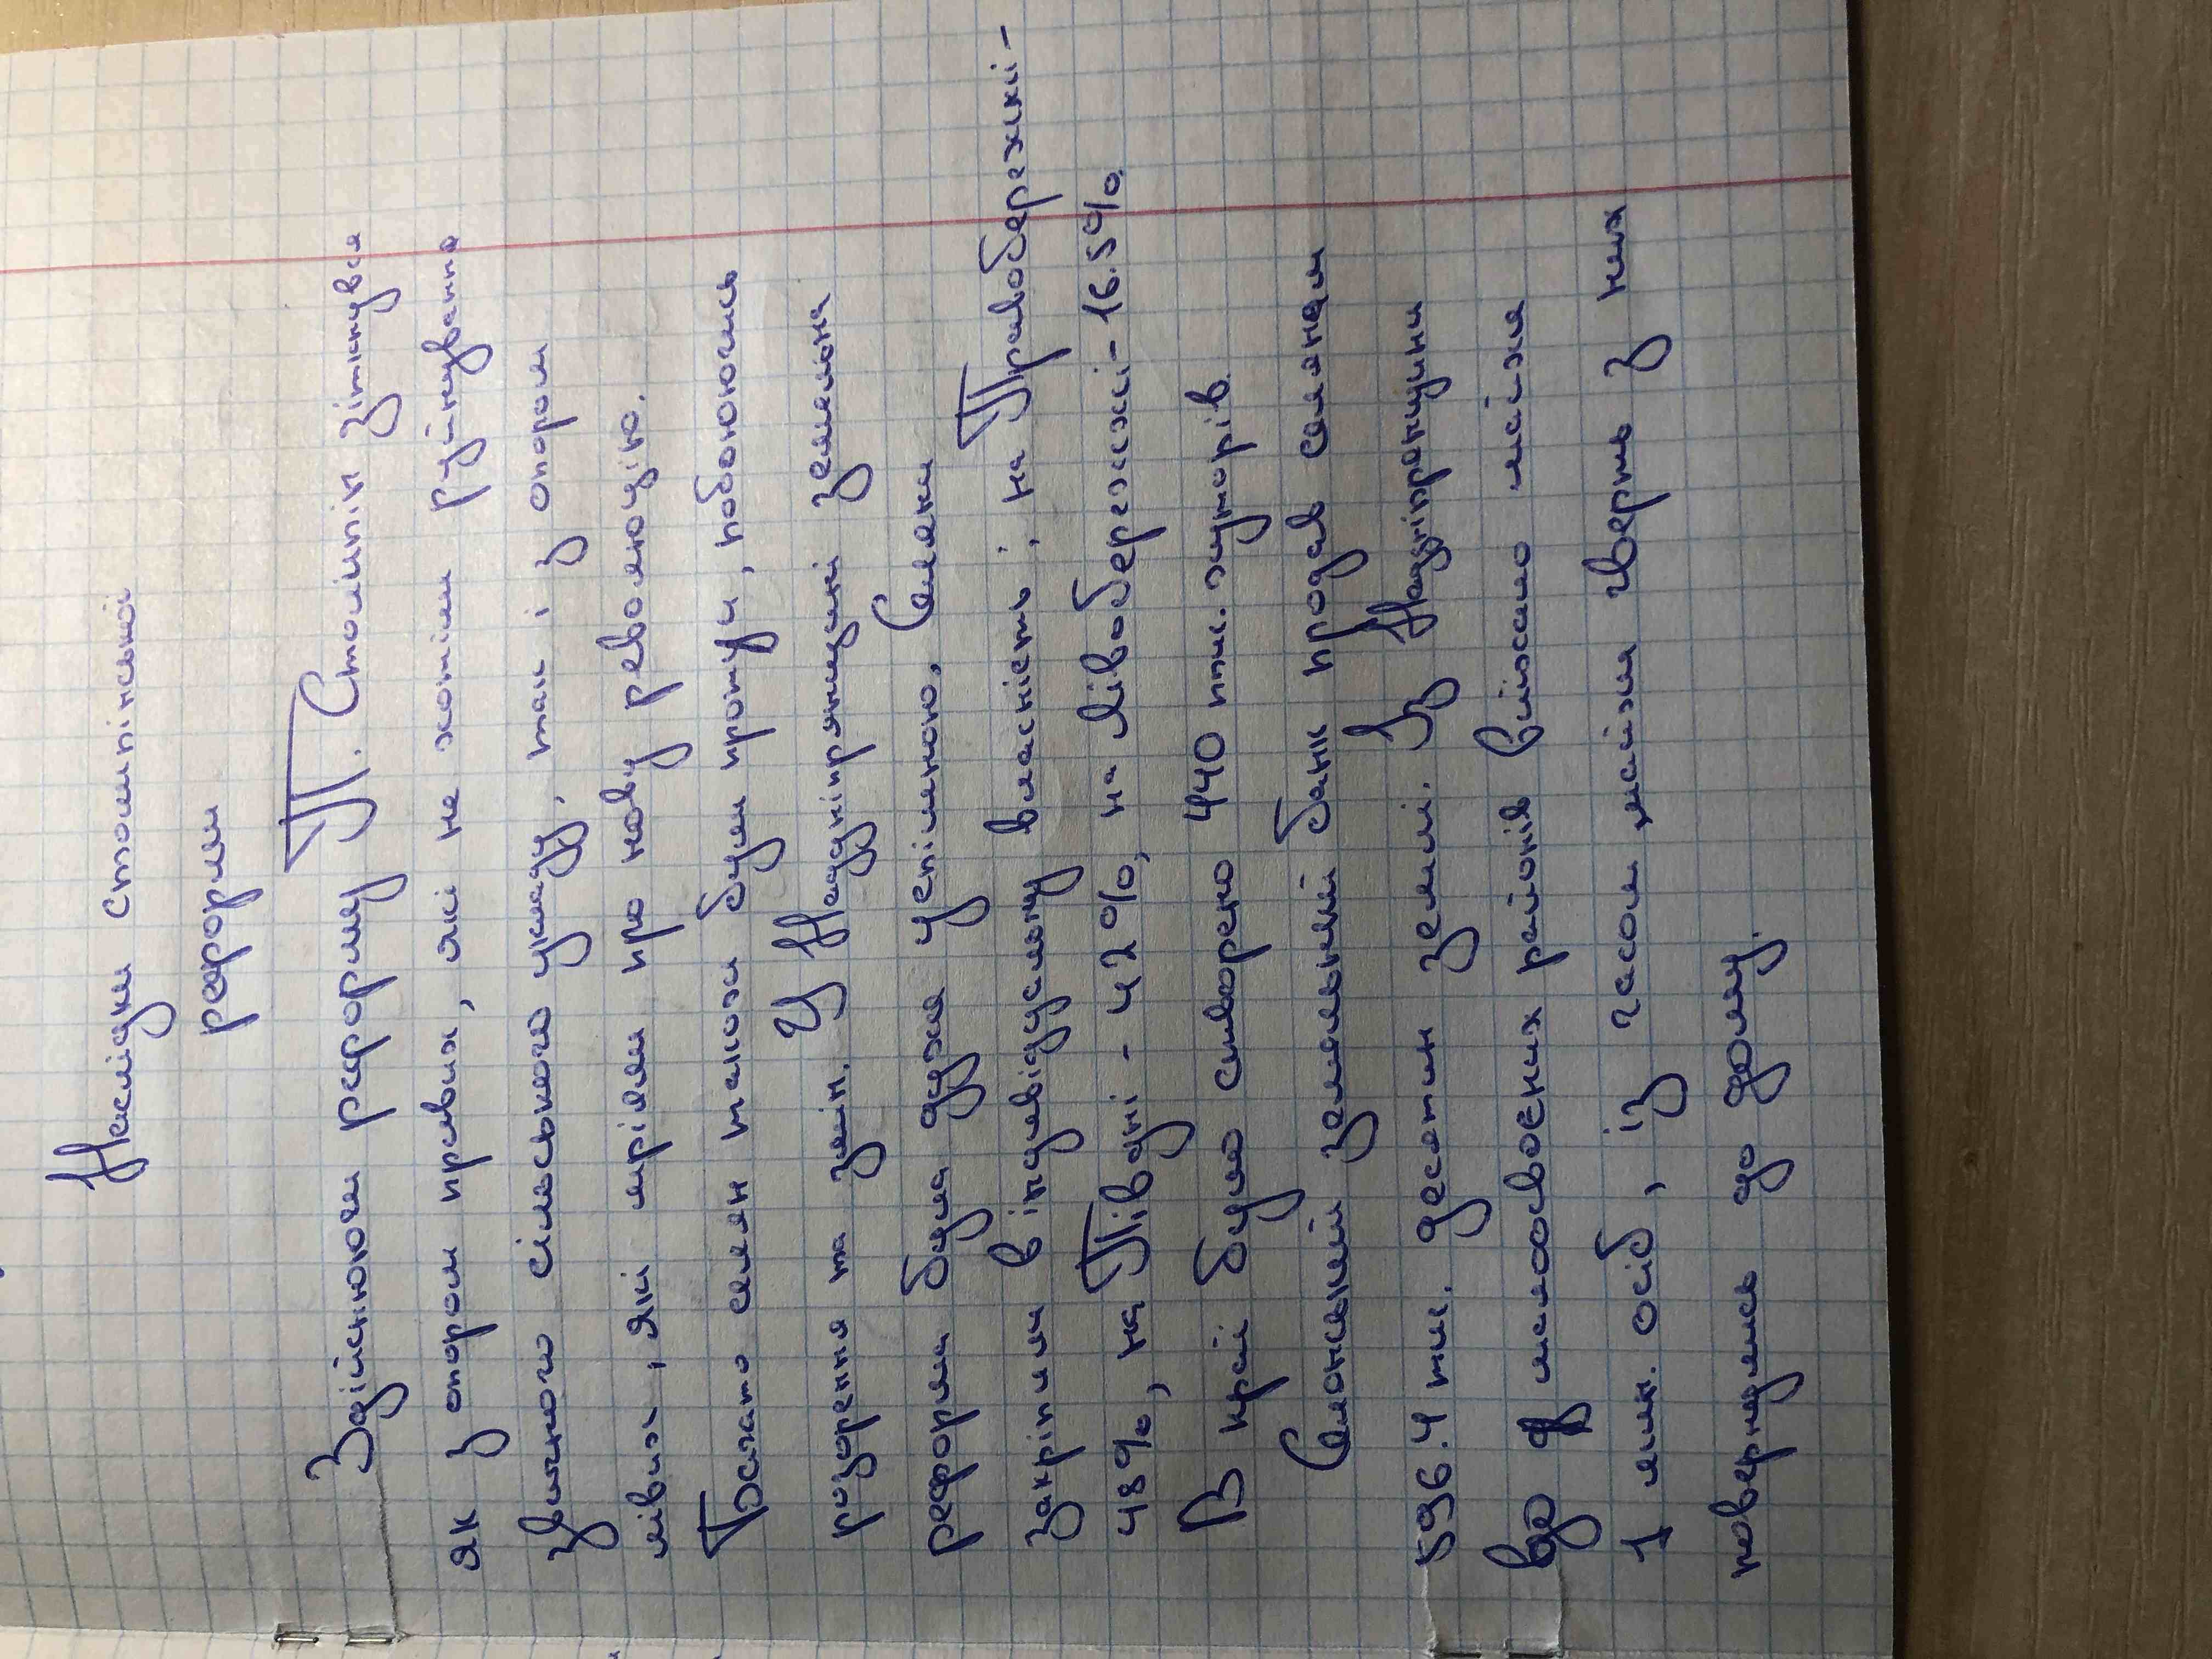 Наслідки столипінської
реформи
Здійснюючи реформу П. Столипін зіткнувся
як з опором правих, які не хотіли руйнування
звичного сільського укладу, так і з опором
лівих, які мріяли про нову революцію.
Багато селян також були проти, побоюючись
розорення та змін. У Наддніпрянщині земельна
реформа була дуже успішною. Селяни
закріпили в індивідуальну власність: на Правобережжі -
48%, на Півдні - 42%, на Лівобережжі - 16.5%.
В краї було створено 440 тис. хуторів.
Селянський земельний банк продав селянам
596.4 тис. десятин землі. Із Наддніпрянщини
до малоосвоєних районів виїхало майже
1 млн. осіб, із часом майже чверть з них
повернулись до дому.